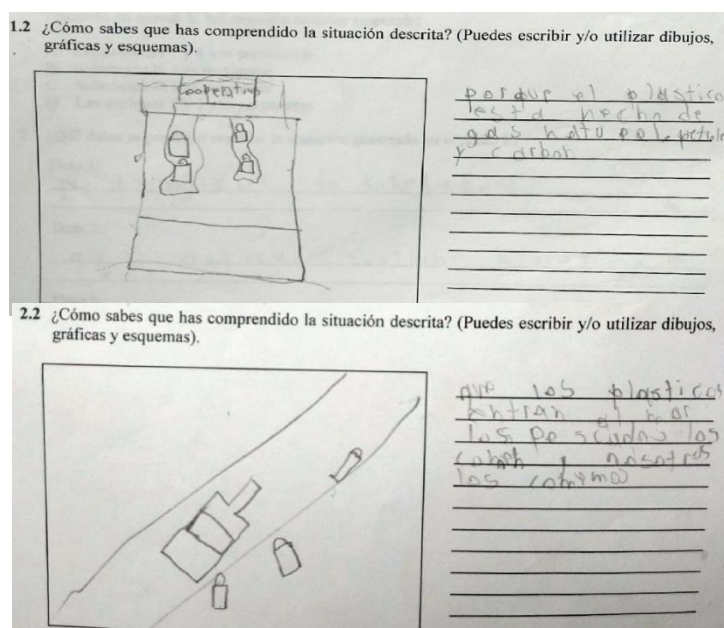 1.2 ¿Cómo sabes que has comprendido la situación descrita? (Puedes escribir y/o utilizar dibujos,
gráficas y esquemas).
Cooperativa
porque el plastico
esta hecho de
gas natu
y carbon
2.2 ¿Cómo sabes que has comprendido la situación descrita? (Puedes escribir y/o utilizar dibujos,
gráficas y esquemas).
que los plasticos
entran al mar
los pescados los
comen y nosotros
los comemos